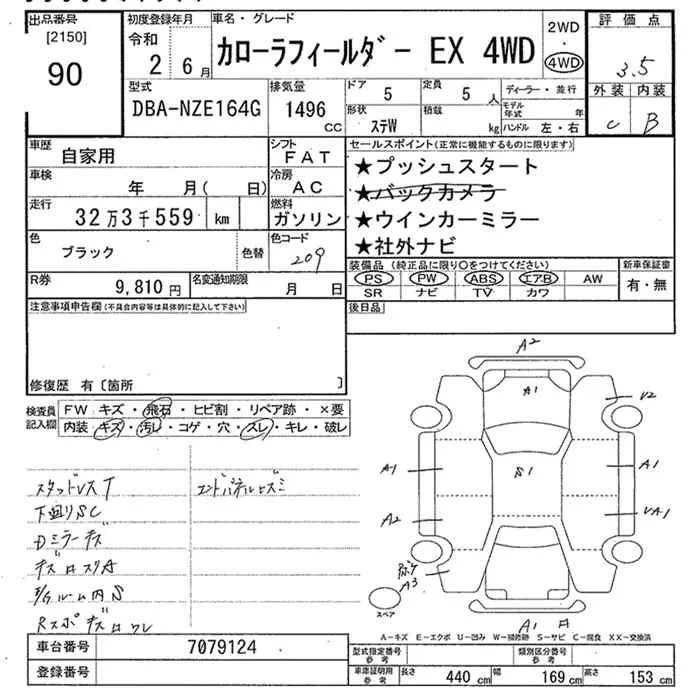 出品番号 初度登録年月 車名・グレード 評価点
[2150]
90
令和
2 6月
カローラフィールダー EX 4WD
2WD
・
4WD
3.5
外装 内装
C B
型式 排気量 ドア 定員 ディーラー・並行
DBA-NZE164G 1496 cc 5 5人
形状 積載 モデル年式 年
ステW kg ハンドル 左・右
車歴 自家用 シフト FAT
車検 年 月( 日) 冷房 AC
走行 32万3千559 km 燃料 ガソリン
色 ブラック 色替 色コード 209
R券 9,810円 名変通知期限 月 日
セールスポイント(正常に機能するものに限ります)
★プッシュスタート
★バックカメラ
★ウインカーミラー
★社外ナビ
装備品(純正品に限り○をつけてください) 新車保証書
PS PW ABS エアB AW 有・無
SR ナビ TV カワ
後日品
注意事項申告欄(不具合内容等は具体的に記入して下さい)
修復歴 有〔箇所 〕
検査員記入欄 FW キズ・飛石・ヒビ割・リペア跡・×要
内装・キズ・汚レ・コゲ・穴・スレ・キレ・破レ
スタッドレスT エンドパネルヒズミ
下廻りSC
Dミラーキズ
ルーム内S
A2
A1
V2
A1 S1 A1
A2 VA1
A3
スペア
A1
A-キズ E-エクボ U-凹み W-補修跡 S-サビ C-腐食 XX-交換済
車台番号 7079124
登録番号
型式指定番号 参考 類別区分番号 参考
車庫証明用 参考 長さ 440 cm 幅 169 cm 高さ 153 cm